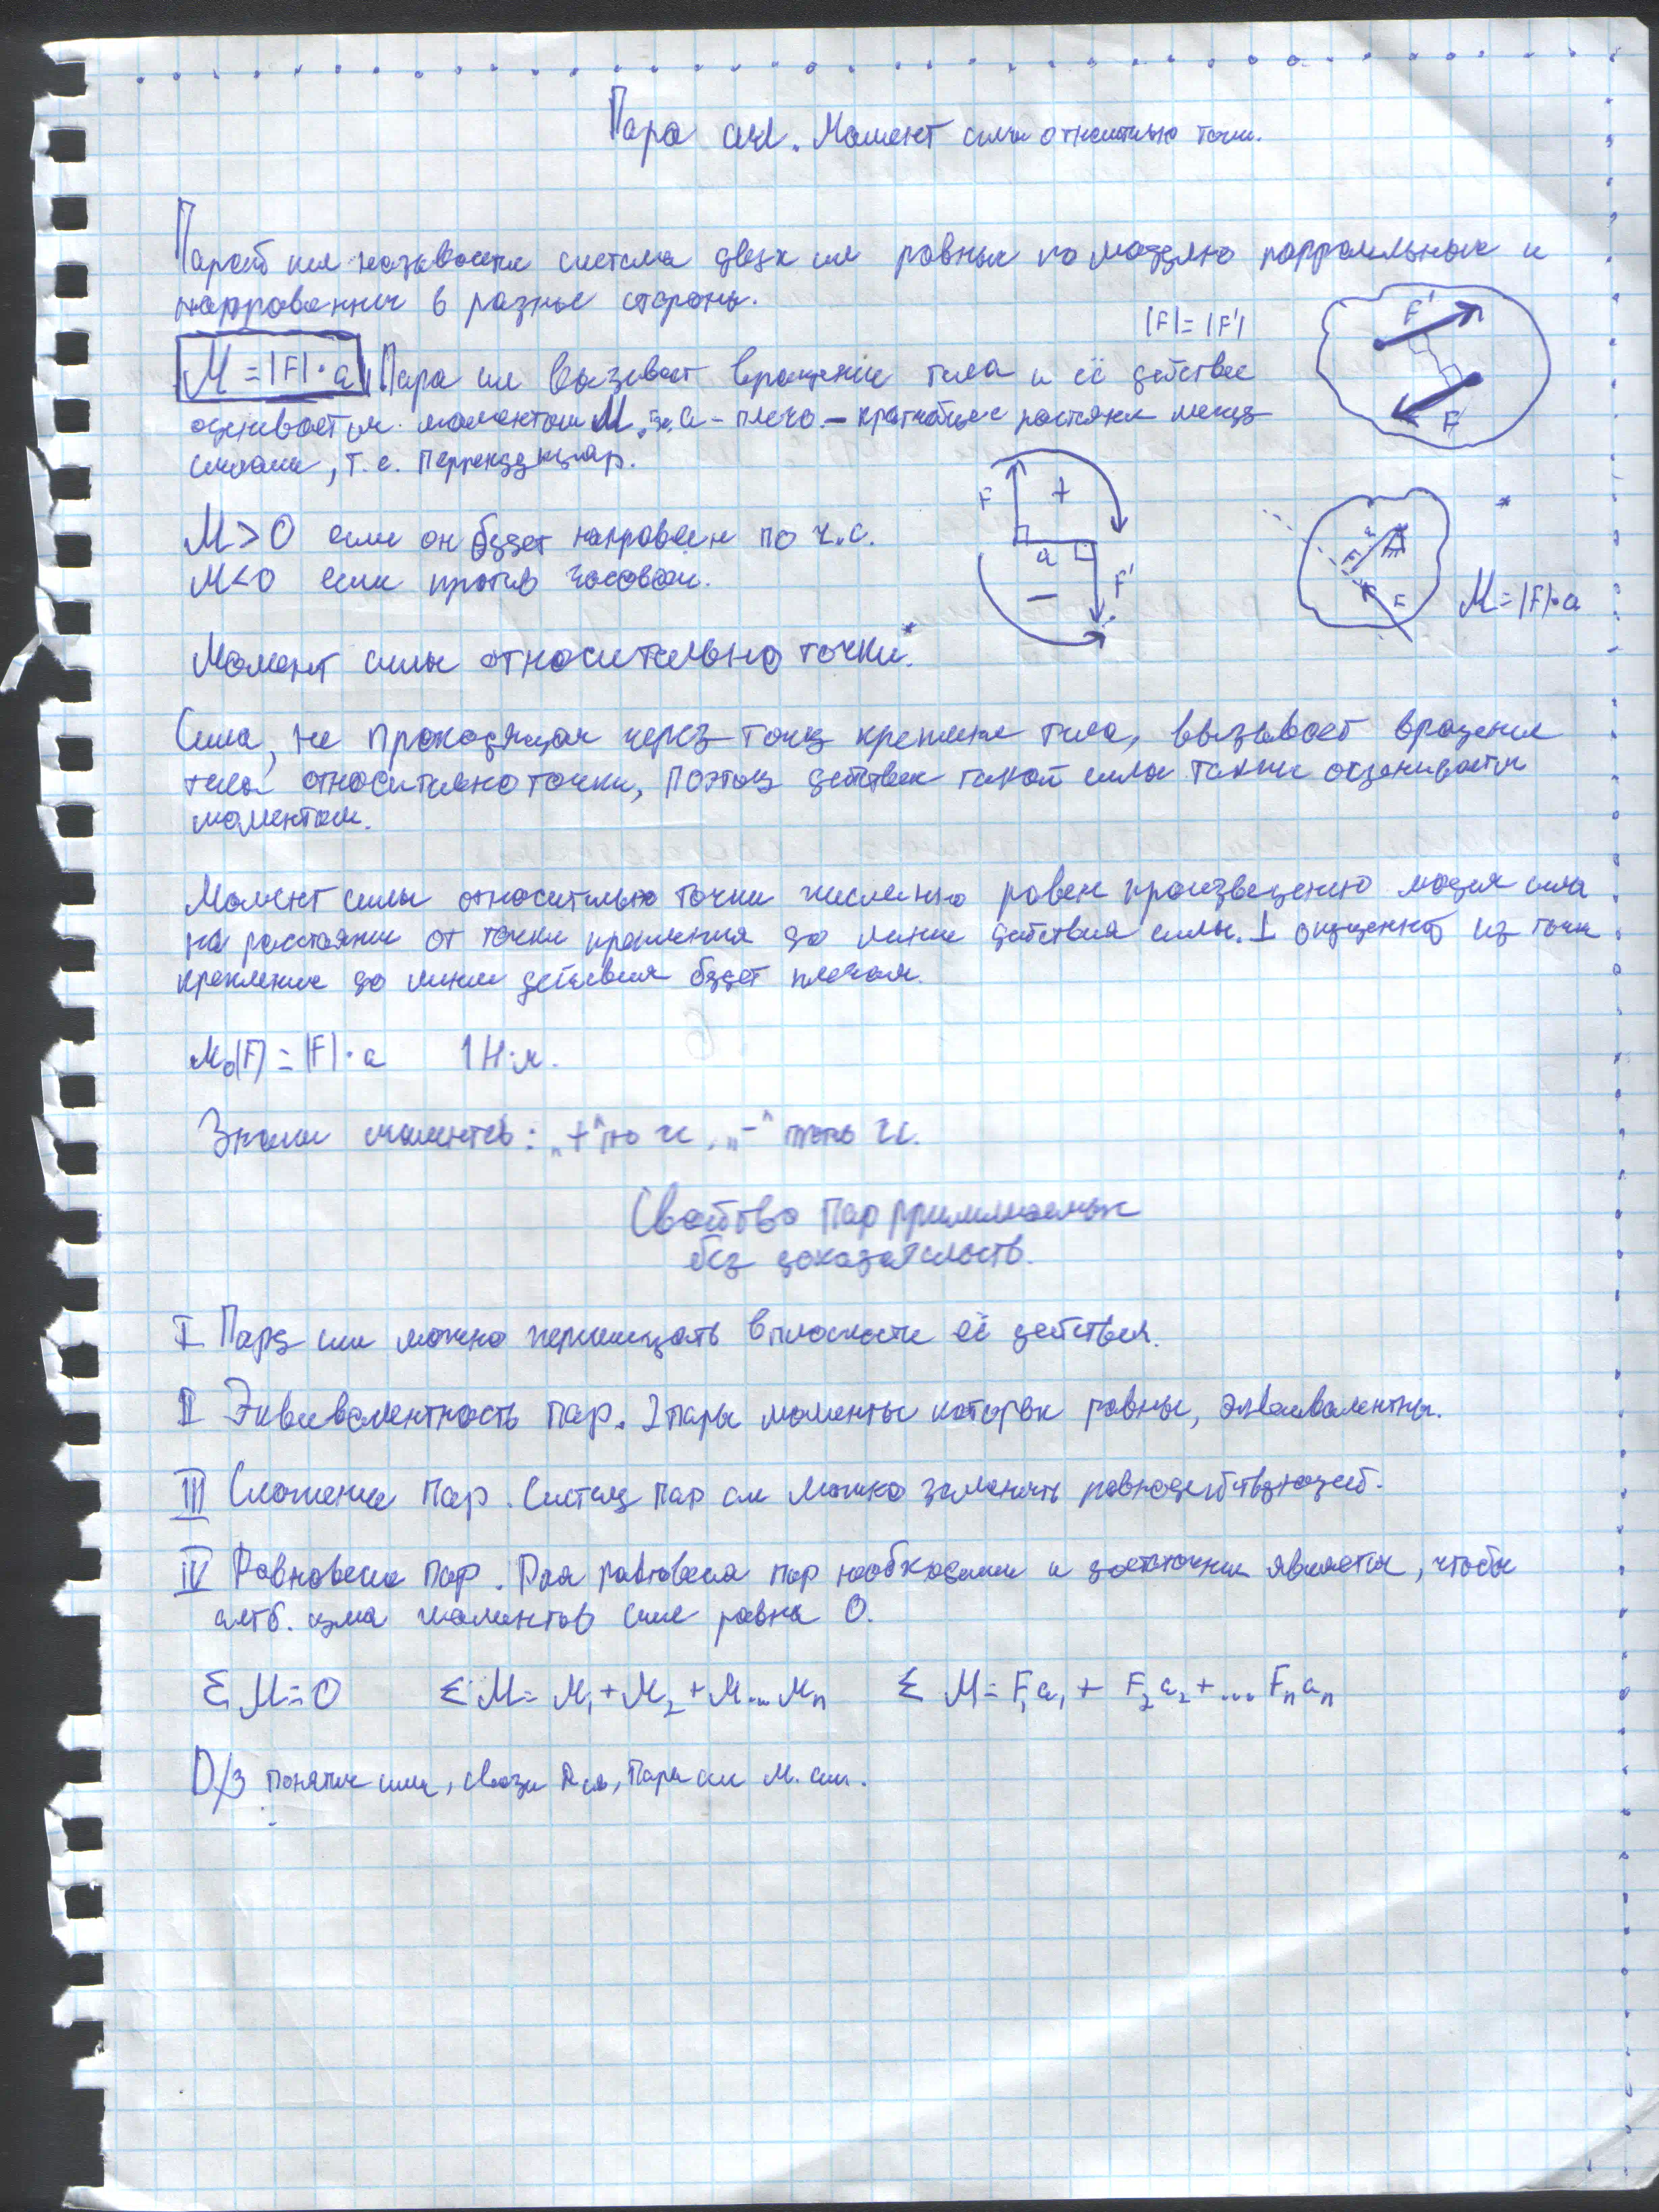 Пара сил. Момент силы относительно точки.
Парой сил называется система двух сил равных по модулю парралельных и
направленных в разные стороны.
|F|=|F'|
F'
F
M = |F|·a Пара сил вызывает вращение тела и её действие
оценивается моментом M, где a - плечо. - кратчайшее растояние между
силами, т.е. перпендикуляр.
F + a F' −
*
a F M=|F|·a
M>0 если он будет направлен по ч.с.
M<0 если против часовой.
Момент силы относительно точки.*
Сила, не проходящая через точку крепления тела, вызывает вращение
тела относительно точки, поэтому действие такой силы также оценивается
моментом.
Момент силы относительно точки численно равен произведению модуля силы
на расстояние от точки крепления до линии действия силы. ⊥ опущенной из точки
крепление до линии действия будет плечом.
M₀(F) = |F|·a 1 Н·м.
Знаки моментов: „+" по чс, „-" против чс.
Свойства пар принимаемых
без доказательств.
I Пару сил можно перемещать в плоскости её действия.
II Эквивалентность пар. 2 пары моменты которых равны, эквивалентны.
III Сложение пар. Систему пар сил можно заменить равнодействующей.
IV Равновесие пар. Для равновесия пар необходимым и достаточным является, чтобы
алгб. сума моментов сил равна 0.
Σ M=0 Σ M= M₁+M₂+M...Mₙ Σ M= F₁a₁+ F₂a₂+... Fₙaₙ
D/з понятие силы, связи, пары сил м. сил.